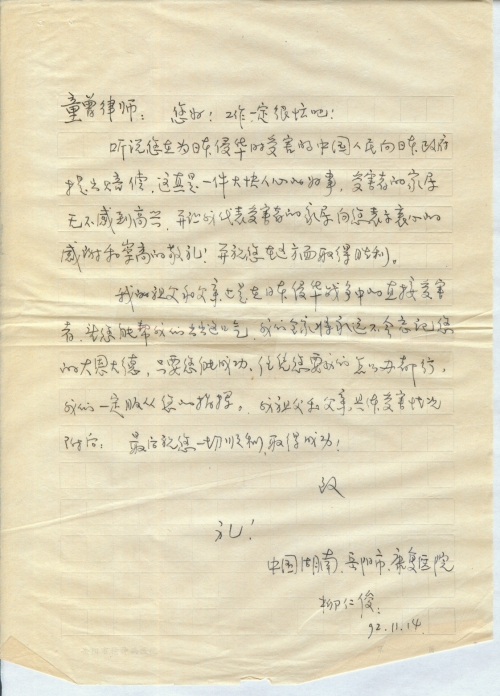 童曾律师: 您好!工作一定很忙吧!
听说您在为日本侵华的受害的中国人民向日本政府
提出赔偿,这真是一件大快人心的好事,受害者的家属
无不感到高兴,并让我代表受害者的家属向您表示衷心的
感谢和崇高的敬礼!并祝您在这方面取得胜利。
我的祖父和父亲也是在日本侵华战争中的直接受害
者,若您能帮我们出出这口气,我们全家将永远不会忘记您
的大恩大德,只要您能成功,任凭您要我们怎么办都行,
我们一定服从您的指挥。我祖父和父亲具体受害情况
附后: 最后祝您一切顺利,取得成功!
致
礼!
中国湖南、岳阳市、康复医院
柳仁俊:
92.11.14.